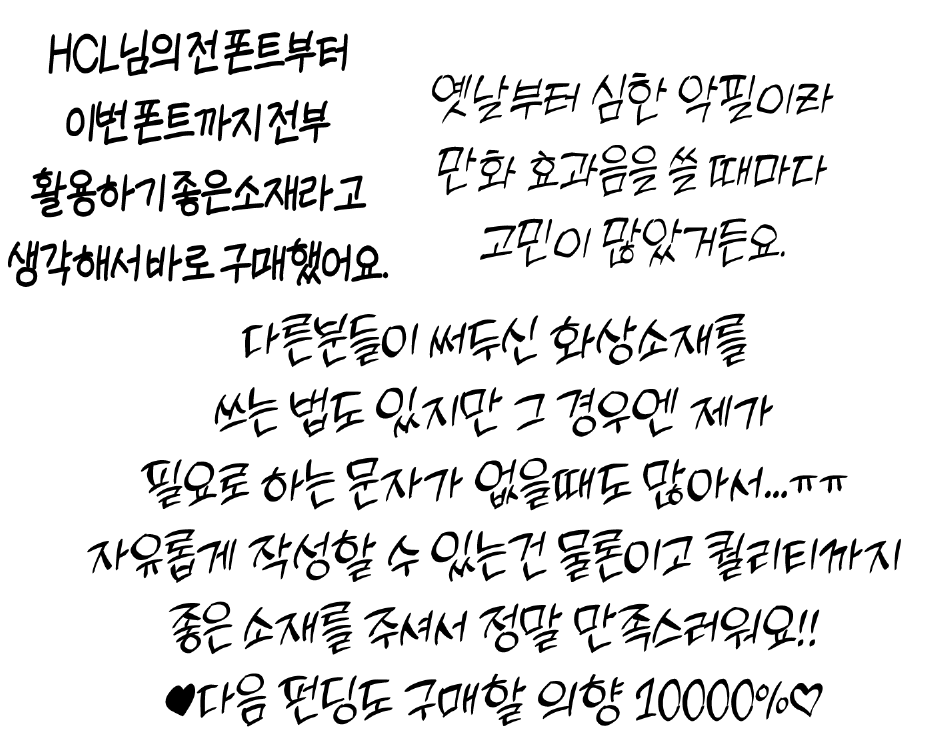 HCL님의 전 폰트부터
이번 폰트까지 전부
활용하기 좋은 소재라고
생각해서 바로 구매했어요.
옛날부터 심한 악필이라
만화 효과음을 쓸 때마다
고민이 많았거든요.
다른분들이 써두신 화상소재를
쓰는 법도 있지만 그 경우엔 제가
필요로 하는 문자가 없을때도 많아서...ㅠㅠ
자유롭게 작성할 수 있는건 물론이고 퀄리티까지
좋은 소재를 주셔서 정말 만족스러워요!!
♥다음 펀딩도 구매할 의향 10000%♡